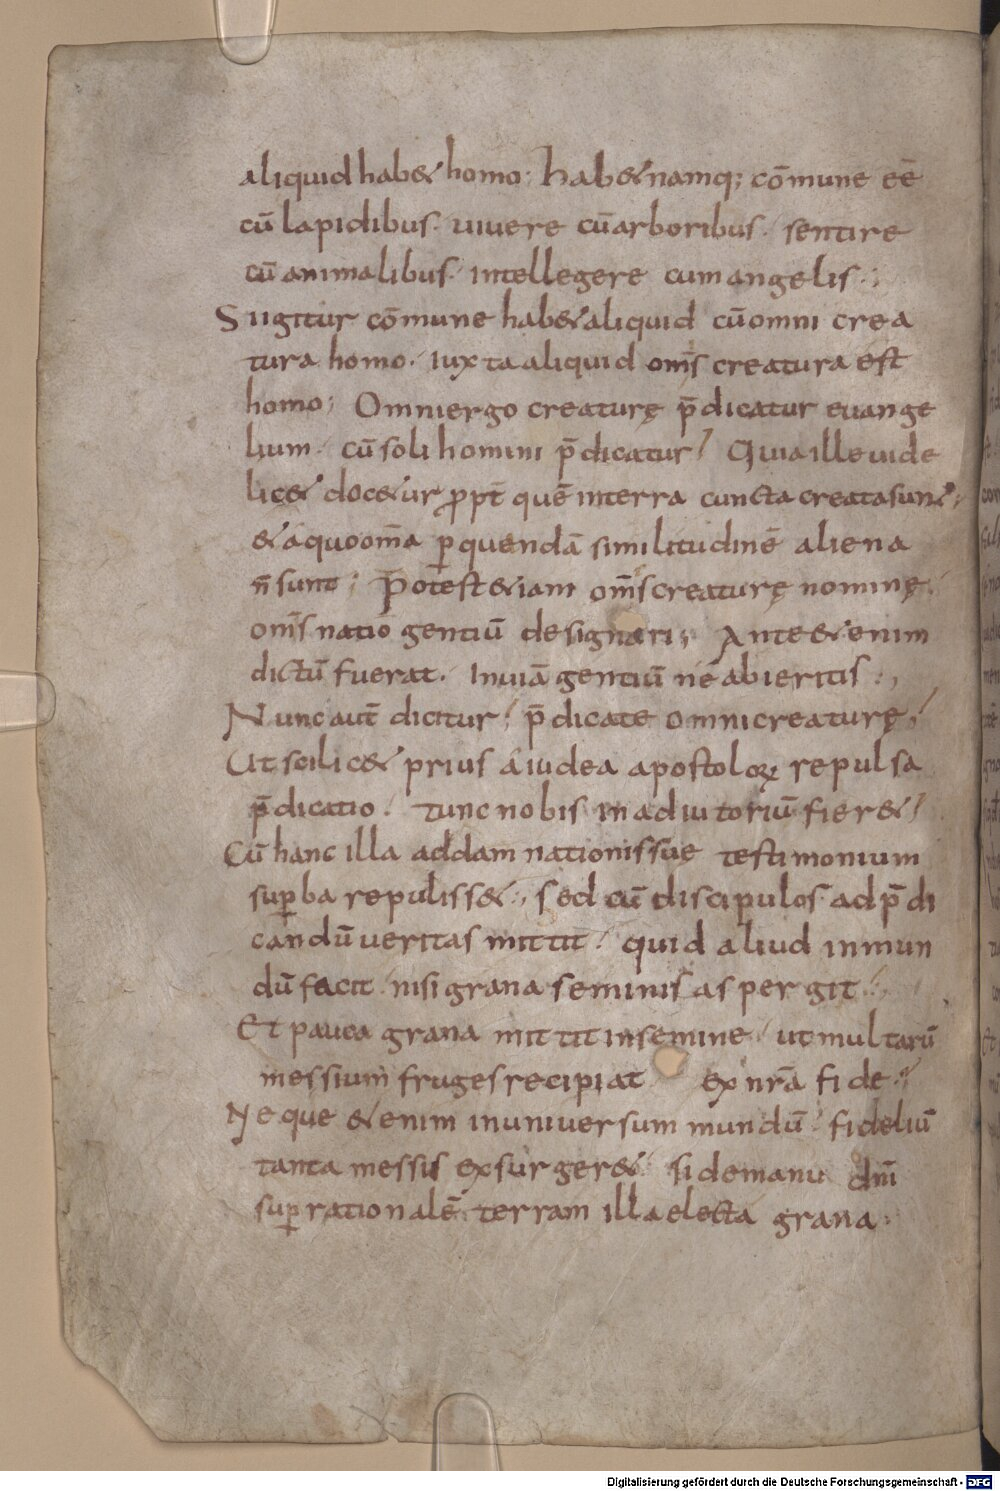 aliquid hab& homo; hab& namq; cōmune eē
cū lapidibus. uiuere cū arboribus. sentire
cū animalibus. intellegere cum angelis.
Si igitur cōmune hab& aliquid cū omni crea
tura homo. iuxta aliquid om̄s creatura est
homo; Omni ergo creaturę p̄dicatur euange
lium. cū soli homini p̄dicatur. Quia ille uide
lic& doc&ur ꝓpt̄ quē in terra cuncta creata sun&.
& a quo om̄a ꝑ quendā similitudinē aliena
n̄ sunt; Potest &iam om̄s creaturę nomine.
om̄s natio gentiū designari; Ante &enim
dictū fuerat. In uiā gentiū ne abieritis.,
Nunc aut̄ dicitur. p̄dicate omni creaturę.
Ut scilic& prius a iudea apostoloꝝ repulsa
p̄dicatio. tunc nobis in adiutoriū fier&.
Cū hanc illa ad damnationis suę testimonium
suꝑba repuliss&., sed cū discipulos ad p̄di
candū ueritas mittit. quid aliud in mun
dū facit. nisi grana seminis aspergit.
Et pauca grana mittit in semine. ut multarū
messium fruges recipiat ex nr̄a fide.
Neque &enim in uniuersum mundū. fideliū
tanta messis exsurger&. si de manu dn̄i
suꝑ rationalē terram illa electa grana.
Digitalisierung gefördert durch die Deutsche Forschungsgemeinschaft - DFG